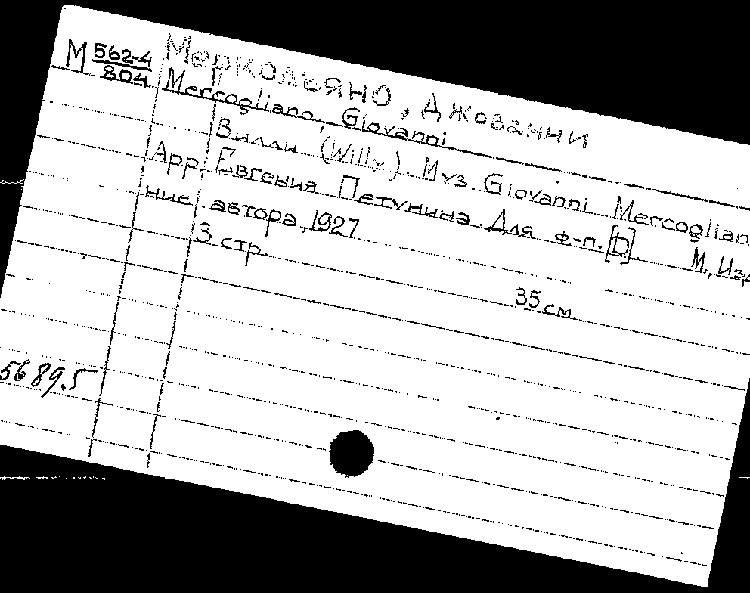 М 562-4/804 Меркольяно, Джованни
Mercogliano, Giovanni
Вилли (Willy). Муз. Giovanni Mercoglian
Арр. Евгения Петунина. Для ф-п. [D]. М., Изд
ние автора, 1927
3 стр.
35 см.
5689.5